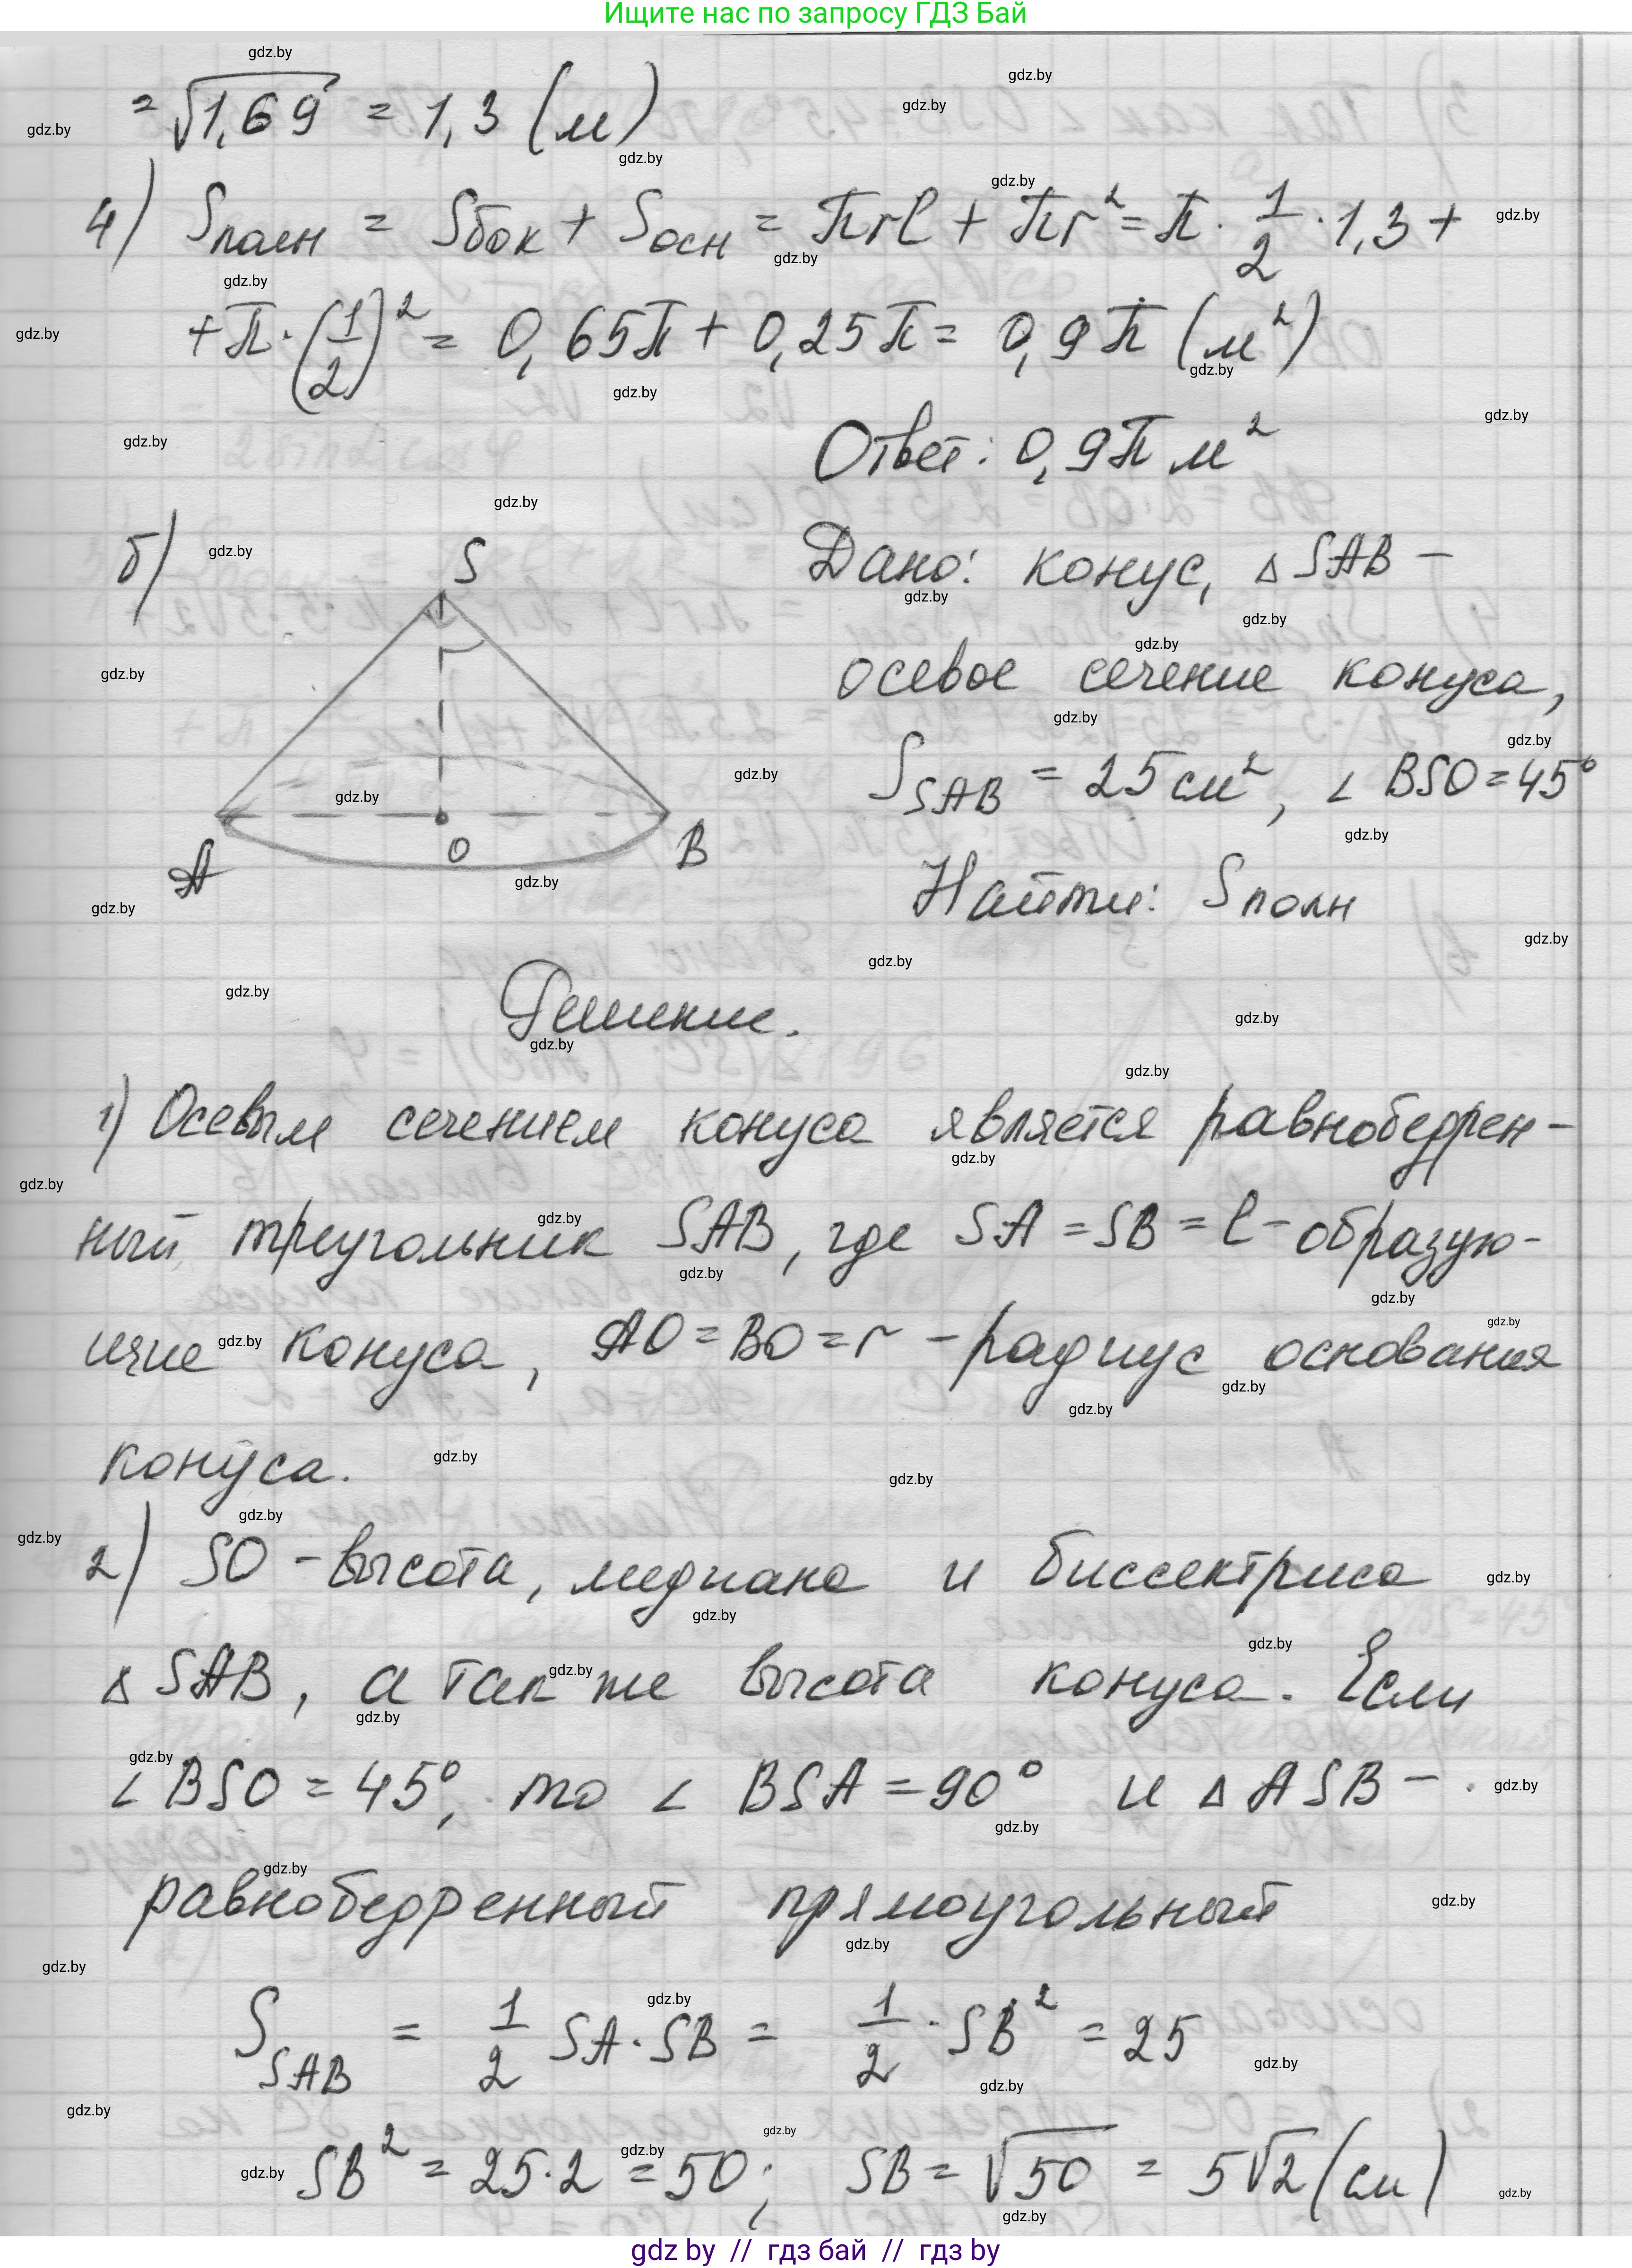 Ищите нас по запросу ГДЗ Бай
= √1,69 = 1,3 (м)
4) Sполн = Sбок + Sосн = πrl + πr² = π · 1/2 · 1,3 +
+ π · (1/2)² = 0,65π + 0,25π = 0,9π (м²)
Ответ: 0,9π м²
б)
S
A
O
B
Дано: конус, △ SAB –
осевое сечение конуса,
S SAB = 25 см², ∠ BSO = 45°
Найти: Sполн
Решение.
1) Осевым сечением конуса является равнобедрен-
ный треугольник SAB, где SA = SB = l – образую-
щие конуса, AO = BO = r – радиус основания
конуса.
2) SO – высота, медиана и биссектриса
△ SAB, а также высота конуса. Если
∠ BSO = 45°, то ∠ BSA = 90° и △ ASB –
равнобедренный прямоугольный
S SAB = 1/2 SA · SB = 1/2 · SB² = 25
SB² = 25 · 2 = 50; SB = √50 = 5√2 (см)
gdz by // гдз бай // гдз by